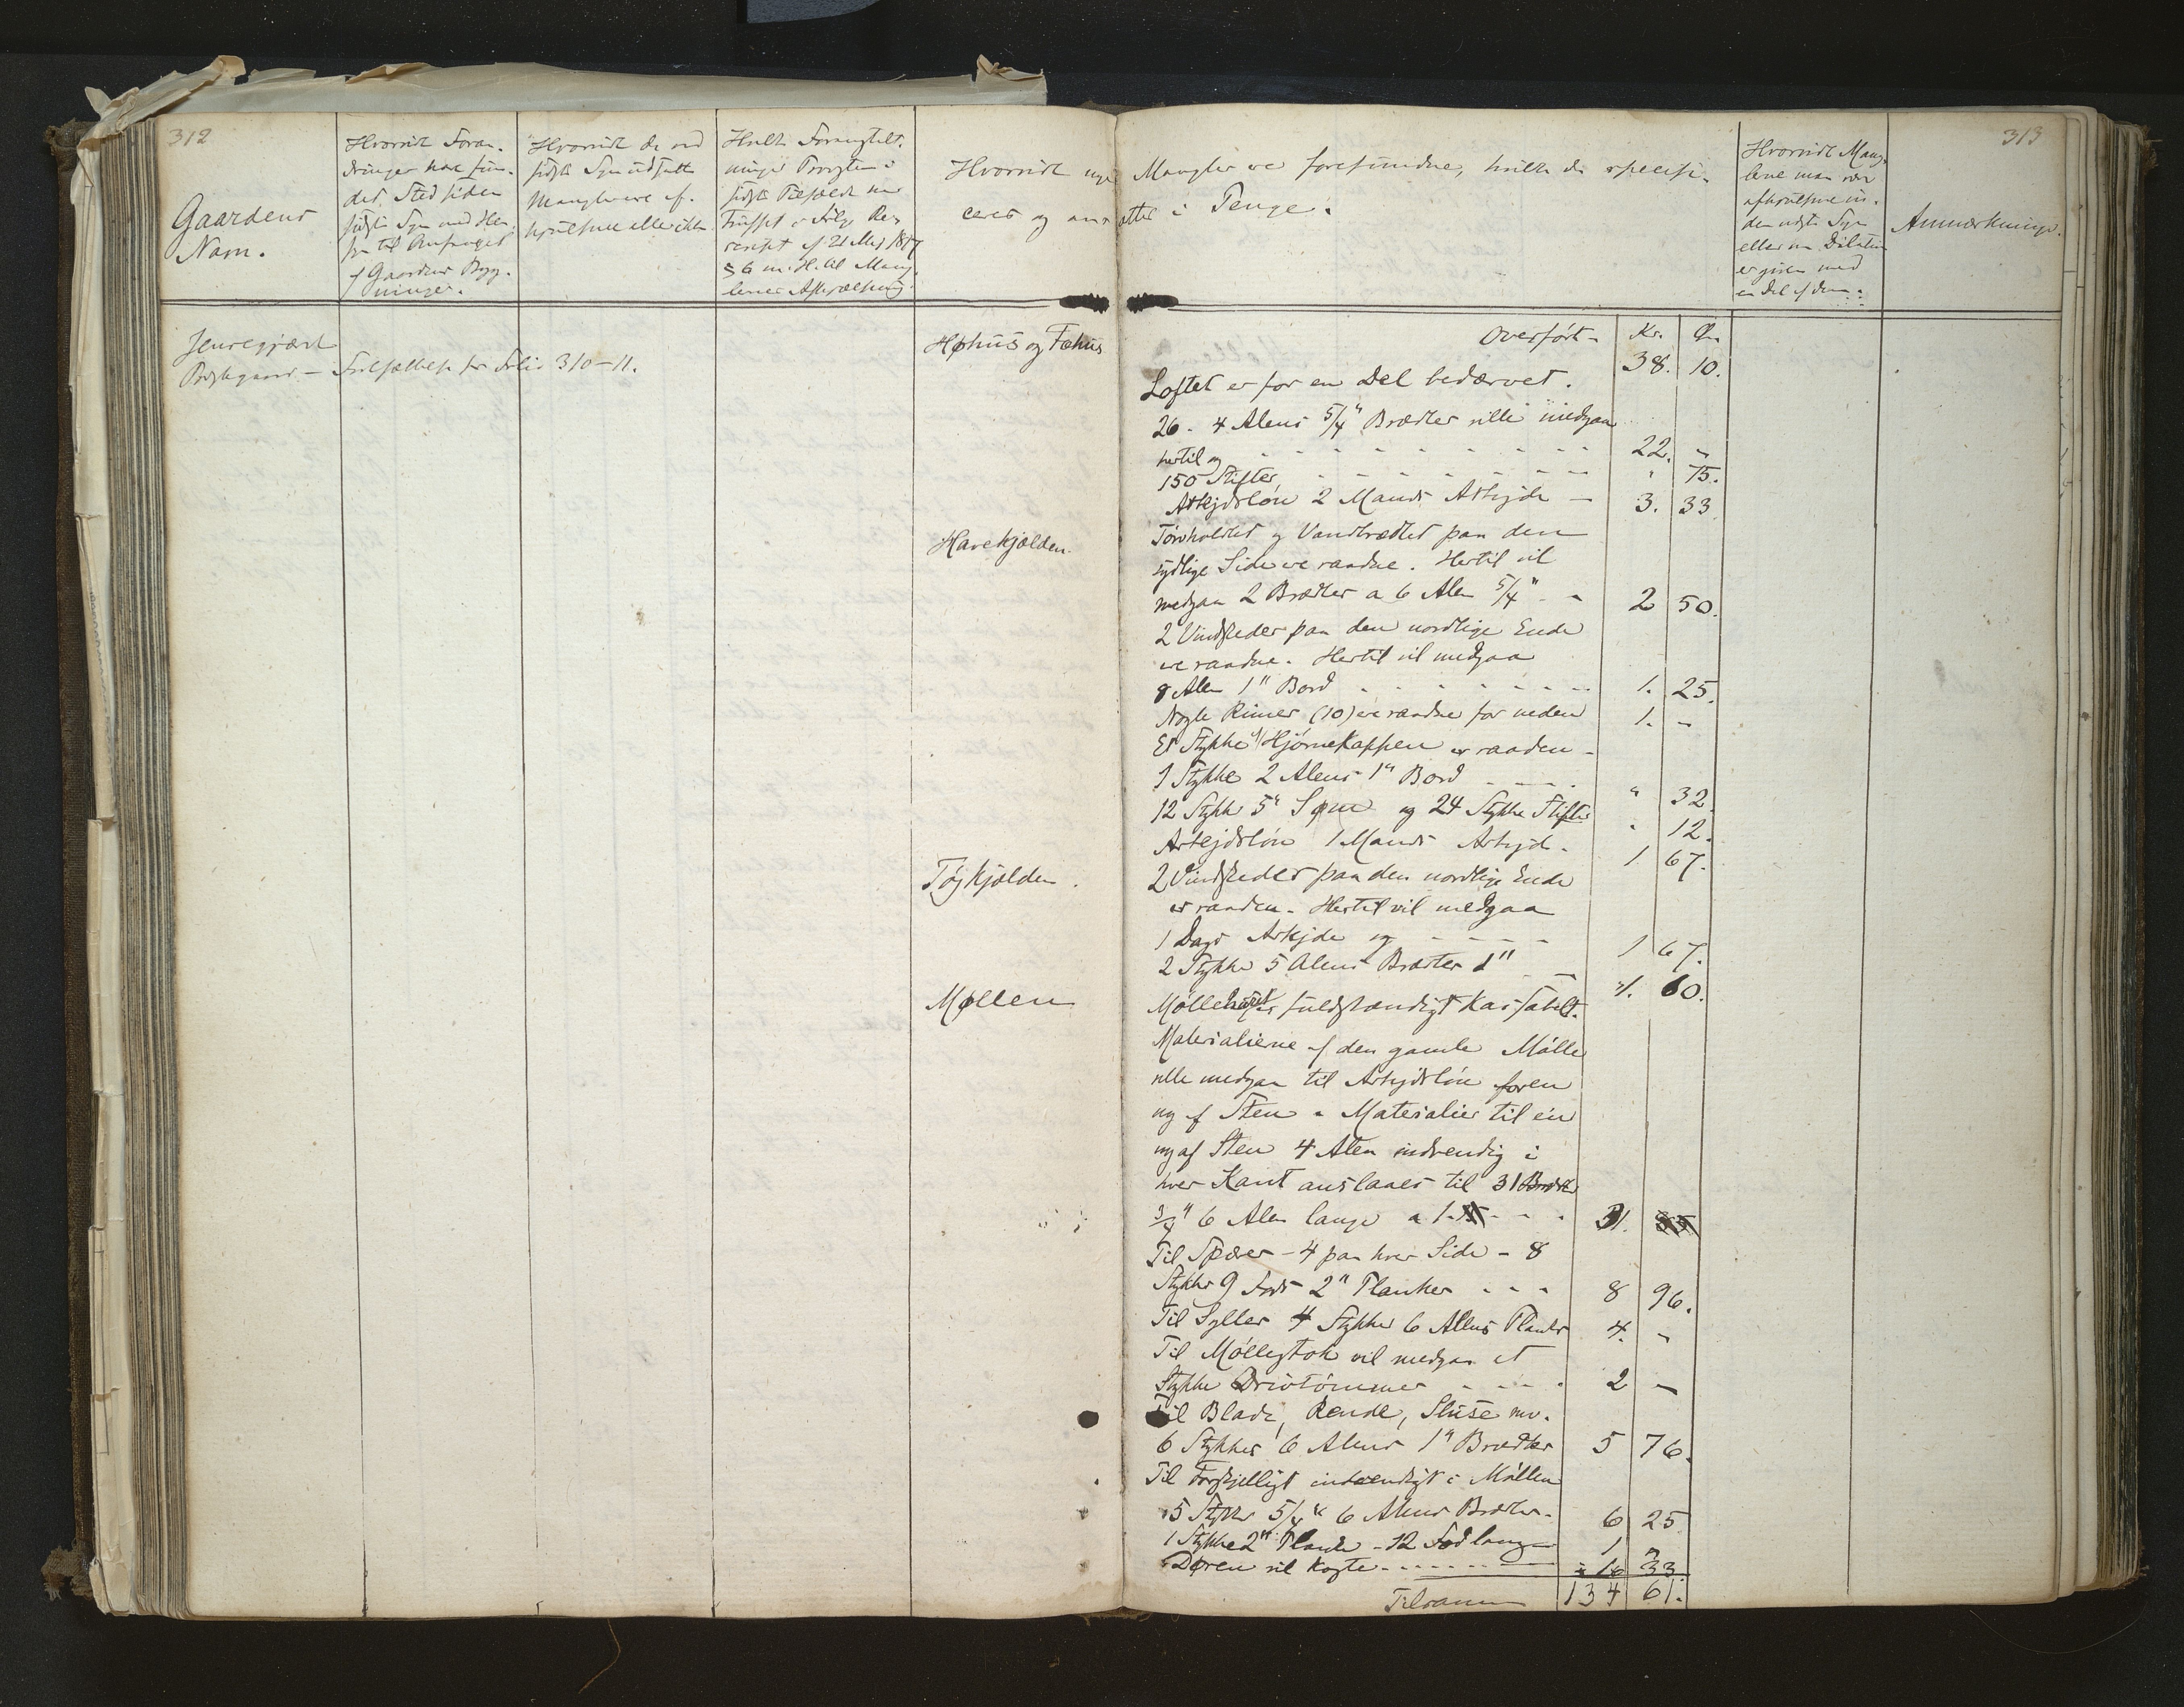 312
Gaardens
Navn.
Hvorvidt Foran-
dringer have fun-
det Sted siden
sidste Syn med Hen-
syn til Omfanget
af Gaardens Byg-
ninger.
Hvorvidt de ved
sidste Syn udsatte
Mangler ere af-
hjulpne eller ikke
Hvilke Foranstalt-
ninger Provsten i
sidste Tilfælde har
truffet i Følge Re-
script af 21 Maj 1817
§ 6 m. H. til Mang-
lernes Afhjælpning.
Hvorvidt nye Mangler ere forefundne, hvilke da specifi-
ceres og ansættes i Penge.
Hvorvidt Mang-
lerne maa være
afhjulpne in-
den næste Syn
eller om Dilation
er given med
en Del af dem.
Anmærkninger.
313
Præstegaard — Folio 310–11.
Høhus og Fæhus
Overført - Kr. Ør.
38. 10.
Loftet er for en Del bedærvet.
26 - 4 Alens 5/4" Brædder ville medgaa
hertil og - - - 22. "
150 Stifter, - - - " 75.
Arbejdsløn 2 Mands Arbejde — 3. 33
Havekjælden
og Vandbrædtet paa den
sydlige Side ere raadne. Hertil vil
medgaa 2 Brædder a 6 Alen 5/4" - 2 50.
2 Vindskeder paa den nordlige Ende
ere raadne. Hertil vil medgaa
8 Alen 1" Bord - - - 1. 25.
Nogle Rimer (10) ere raadne for neden 1. -
Et Stykke af Hjørnekappen er raaden -
1 Stykke 2 Alens 1" Bord - - - " 32
12 Stykker 5" Søm og 24 Stykker Stifter " 12.
Arbejdsløn 1 Mands Arbejde - 1 67.
Tøjkjælden.
2 Vindskeder paa den nordlige Ende
er raaden. Hertil vil medgaa
1 Dags Arbejde og - - - 1 67.
2 Stykker 5 Alens Brædder 1" 1. 60.
Møllen
Møllehuset er fuldstændigt kassabelt.
Materialierne af den gamle Mølle
ville medgaa til Arbejdsløn for en
ny af Sten - Materialier til en
ny af Sten 4 Alen indvendig i
hver Kant anslaaes til 31 Brædder
3/4" 6 Alen lange a 1 - - - 31.
Til Spærer - 4 paa hver Side - 8
Stykker 9 Fods 2" Planker - - - 8 96.
Til Syller 4 Stykker 6 Alens Planker 4. -
Til Møllestok vil medgaa et
Stykke Drivtømmer - - - 2 —
Til Blade, Rende, Sluse mv.
6 Stykker 6 Alens 1" Brædder 5 76.
Til Forskjelligt indvendigt i Møllen
5 Stykker 5/4" 6 Alens Brædder - 6 25
1 Stykke 2" Planke - 12 Fod lang - 1 "
Døren vil koste - - - 1 33.
Tilsammen 134 61.